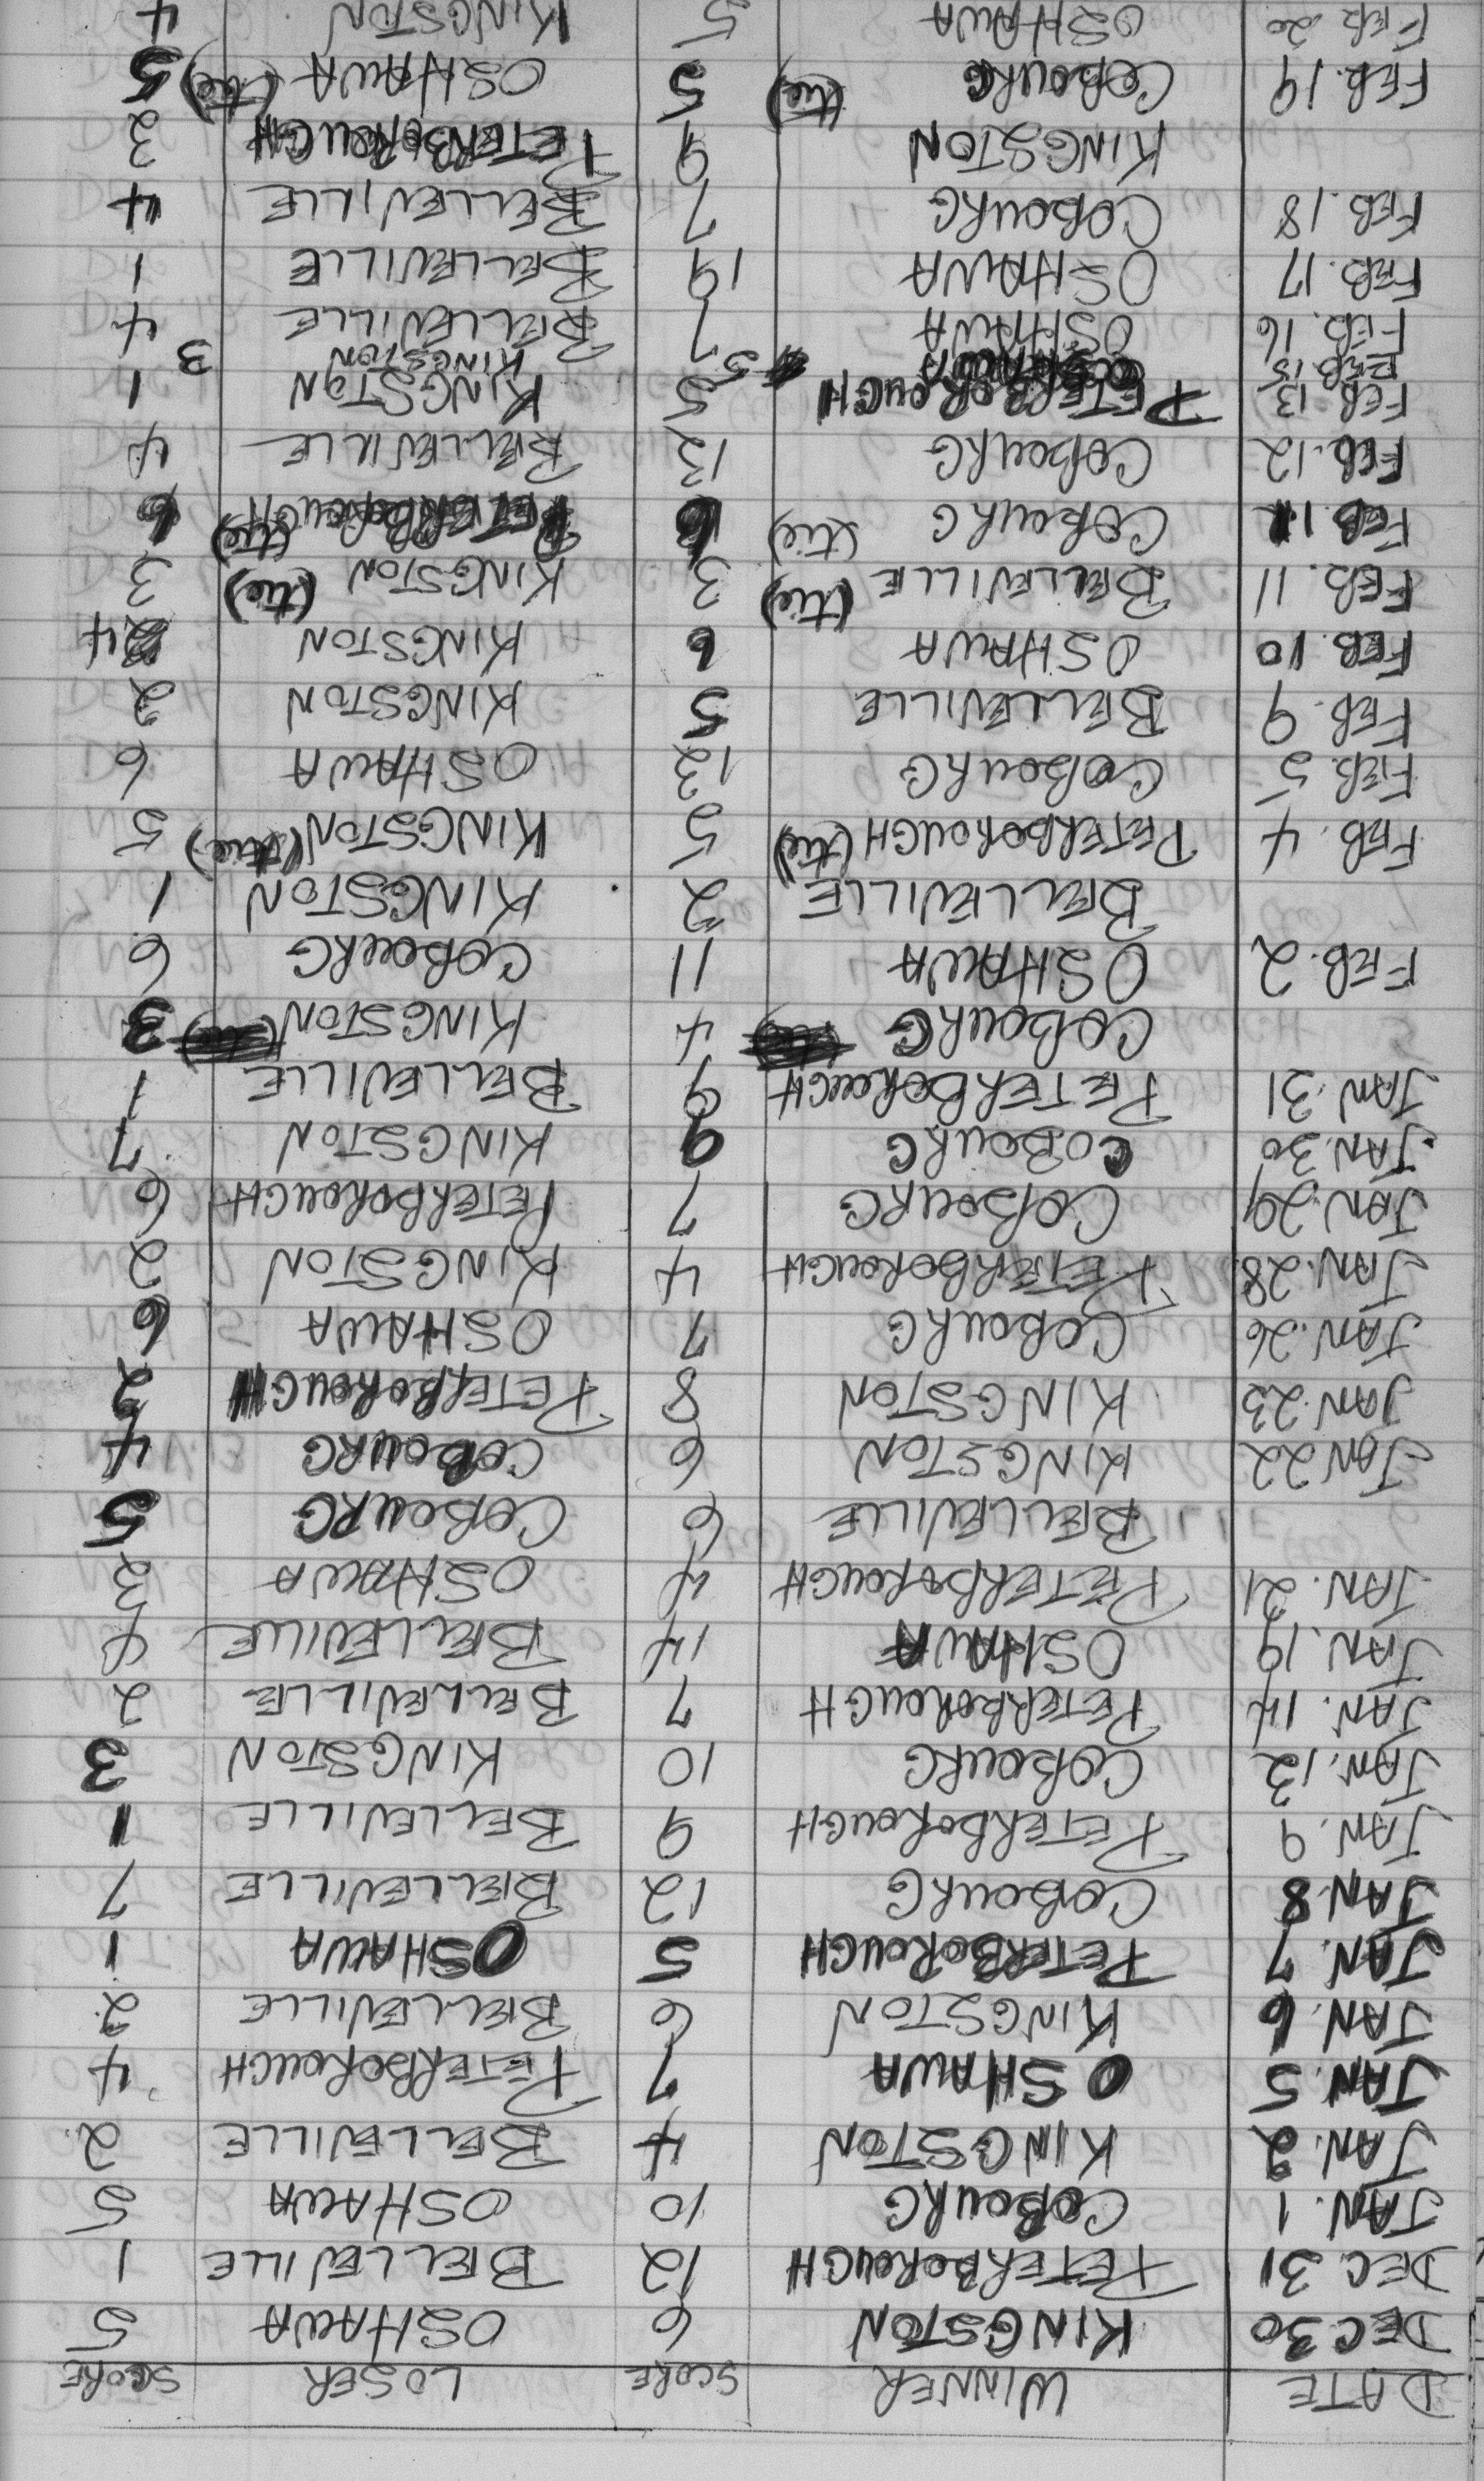 DATE WINNER SCORE LOSER SCORE
DEC. 30 KINGSTON 6 OSHAWA 5
DEC. 31 PETERBOROUGH 12 BELLEVILLE 1
JAN. 1 COBOURG 10 OSHAWA 5
JAN. 2 KINGSTON 4 BELLEVILLE 2
JAN. 5 OSHAWA 7 PETERBOROUGH 4
JAN. 6 KINGSTON 6 BELLEVILLE 2
JAN. 7 PETERBOROUGH 5 OSHAWA 1
JAN. 8 COBOURG 12 BELLEVILLE 7
JAN. 9 PETERBOROUGH 9 BELLEVILLE 1
JAN. 12 COBOURG 10 KINGSTON 3
JAN. 14 PETERBOROUGH 7 BELLEVILLE 2
JAN. 19 OSHAWA 14 BELLEVILLE
JAN. 21 PETERBOROUGH 4 OSHAWA 3
BELLEVILLE 6 COBOURG 5
JAN 22 KINGSTON 6 COBOURG 4
JAN. 23 KINGSTON 8 PETERBOROUGH 2
JAN. 26 COBOURG 7 OSHAWA 6
JAN. 28 PETERBOROUGH 4 KINGSTON 2
JAN. 29 COBOURG 7 PETERBOROUGH 6
JAN. 30 COBOURG 9 KINGSTON 7
JAN. 31 PETERBOROUGH 9 BELLEVILLE 1
COBOURG 4 KINGSTON 3
FEB. 2 OSHAWA 11 COBOURG 6
BELLEVILLE 2 KINGSTON 1
FEB. 4 PETERBOROUGH (tie) 5 KINGSTON (tie) 5
FEB. 5 COBOURG 13 OSHAWA 6
FEB. 9 BELLEVILLE 5 KINGSTON 2
FEB. 10 OSHAWA 6 KINGSTON 4
FEB. 11 BELLEVILLE (tie) 3 KINGSTON (tie) 3
FEB. 11 COBOURG (tie) 6 PETERBOROUGH (tie) 6
FEB. 12 COBOURG 13 BELLEVILLE 4
FEB. 13 PETERBOROUGH 5 KINGSTON 1
FEB. 15 5 KINGSTON 3
FEB. 16 OSHAWA 7 BELLEVILLE 4
FEB. 17 OSHAWA 19 BELLEVILLE 1
FEB. 18 COBOURG 7 BELLEVILLE 4
KINGSTON 9 PETERBOROUGH 3
FEB. 19 COBOURG (tie) 5 OSHAWA (tie) 5
FEB. 20 OSHAWA 5 KINGSTON 4